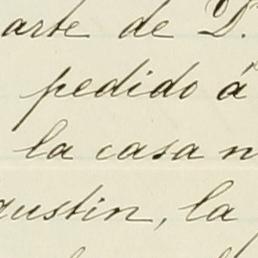 arte de D.
pedido á
la casa n
gustin, la